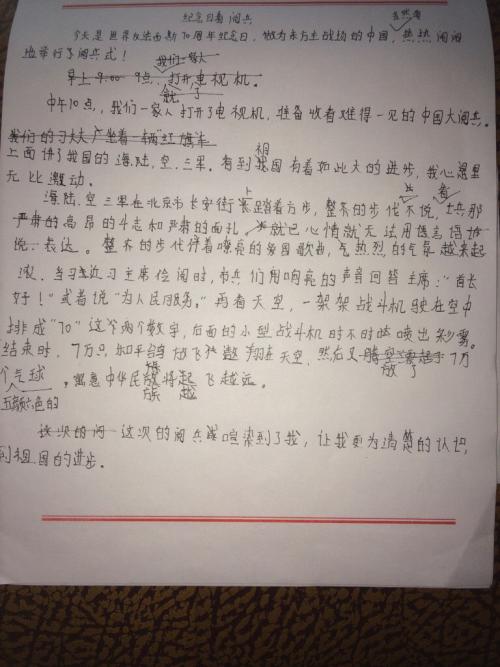 纪念日看阅兵
今天是世界反法西斯70周年纪念日,做为东方主战场的中国,当然要热热闹闹
地举行了阅兵式!
早上 9:00 9点,我们一家人打开电视机。
中午10点,我们一家人就打开了电视机,准备收看难得一见的中国大阅兵。
上面讲了我国的海、陆、空、三军。看到祖国有着如此大的进步,我心里
无比激动。
海、陆、空三军在北京市长安街上踏着方步,整齐的步伐不说,士兵那
严肃的高昂的斗志和严肃的面孔,就已心情就无法用语言
表达。整齐的步伐伴着嘹亮的爱国歌曲,气热烈的气氛越来越
浓。当习近习主席检阅时,士兵们用响亮的声音回答主席:"首长
好!"或者说"为人民服务。"再看天空,一架架战斗机驶在空中
排成"70"这个两个数字,后面的小型战斗机时不时喷出彩雾。
结束时,7万只和平鸽放飞翱翔在天空,然后又放了7万
个气球,寓意中华民族将起飞越远。
五颜六色的
这次的阅 这次的阅兵渲染到了我,让我更为清楚的认识
到祖国的进步。